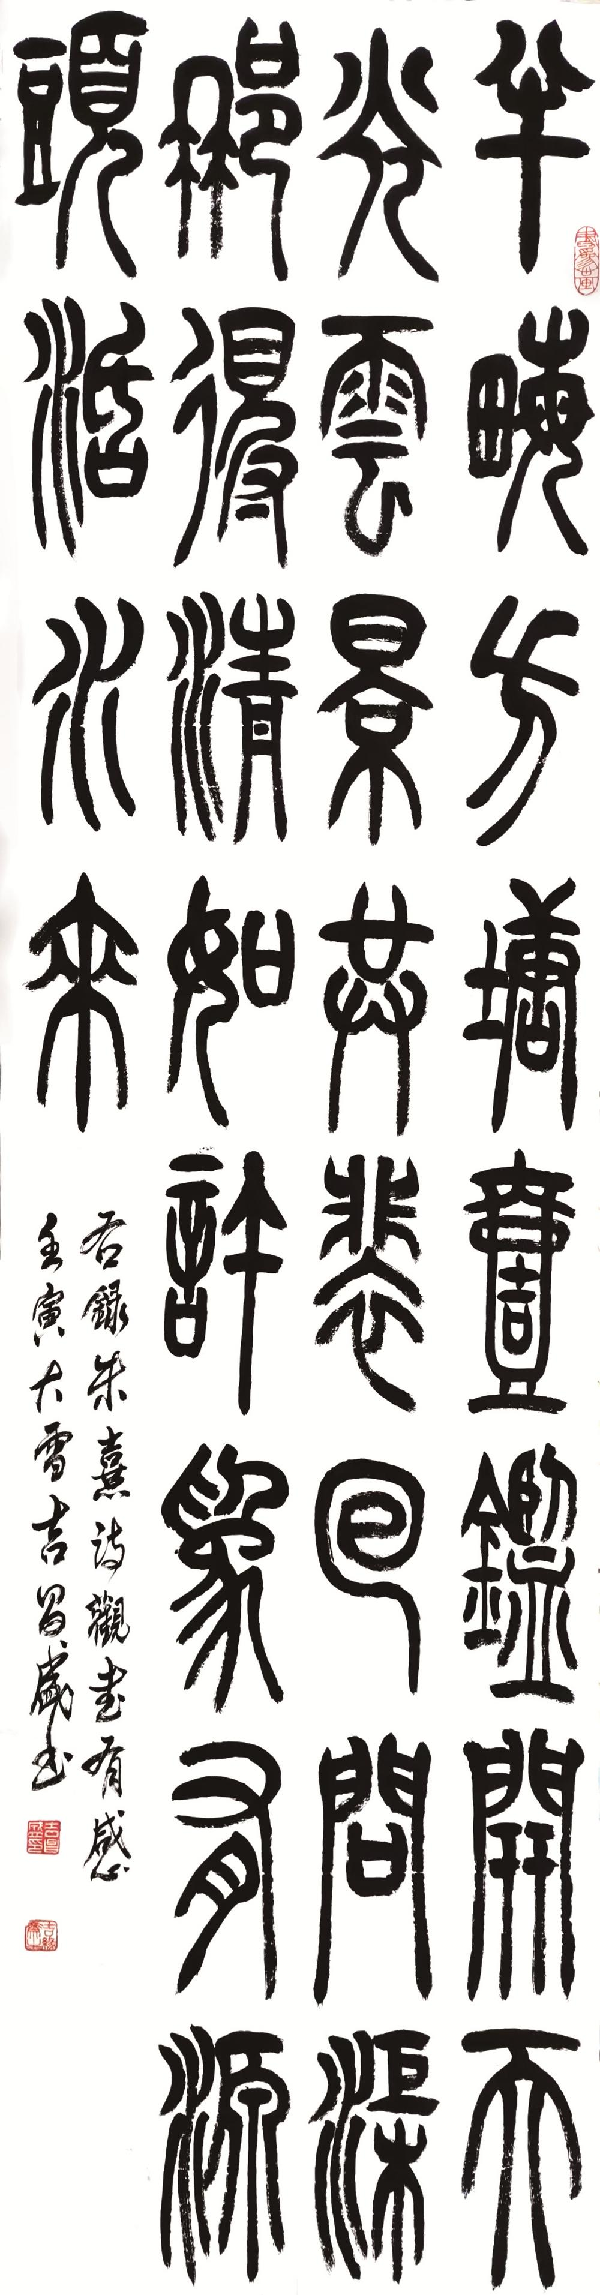 半畮方塘壹鑑開天
光雲景共裴回問渠
那得清如許爲有源
頭活水來
右錄朱熹詩觀書有感
壬寅大雪吉昌盛书